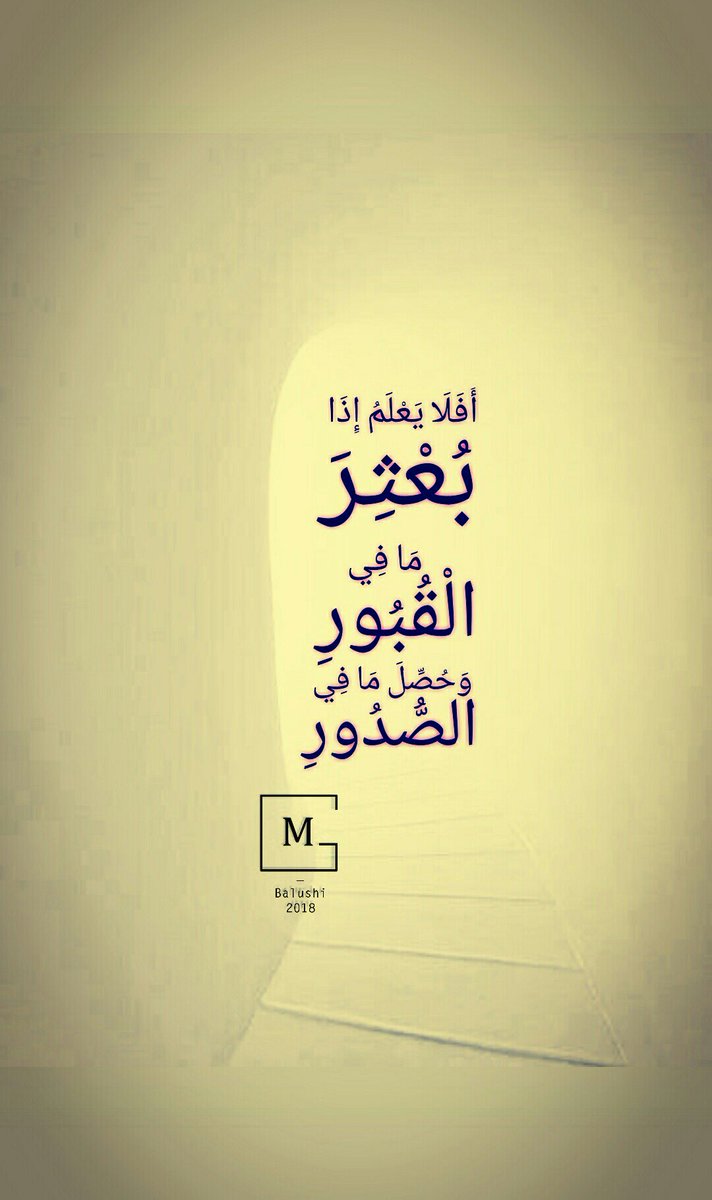 أَفَلَا يَعْلَمُ إِذَا
بُعْثِرَ
مَا فِي
الْقُبُورِ
وَحُصِّلَ مَا فِي
الصُّدُورِ
M
Balushi
2018